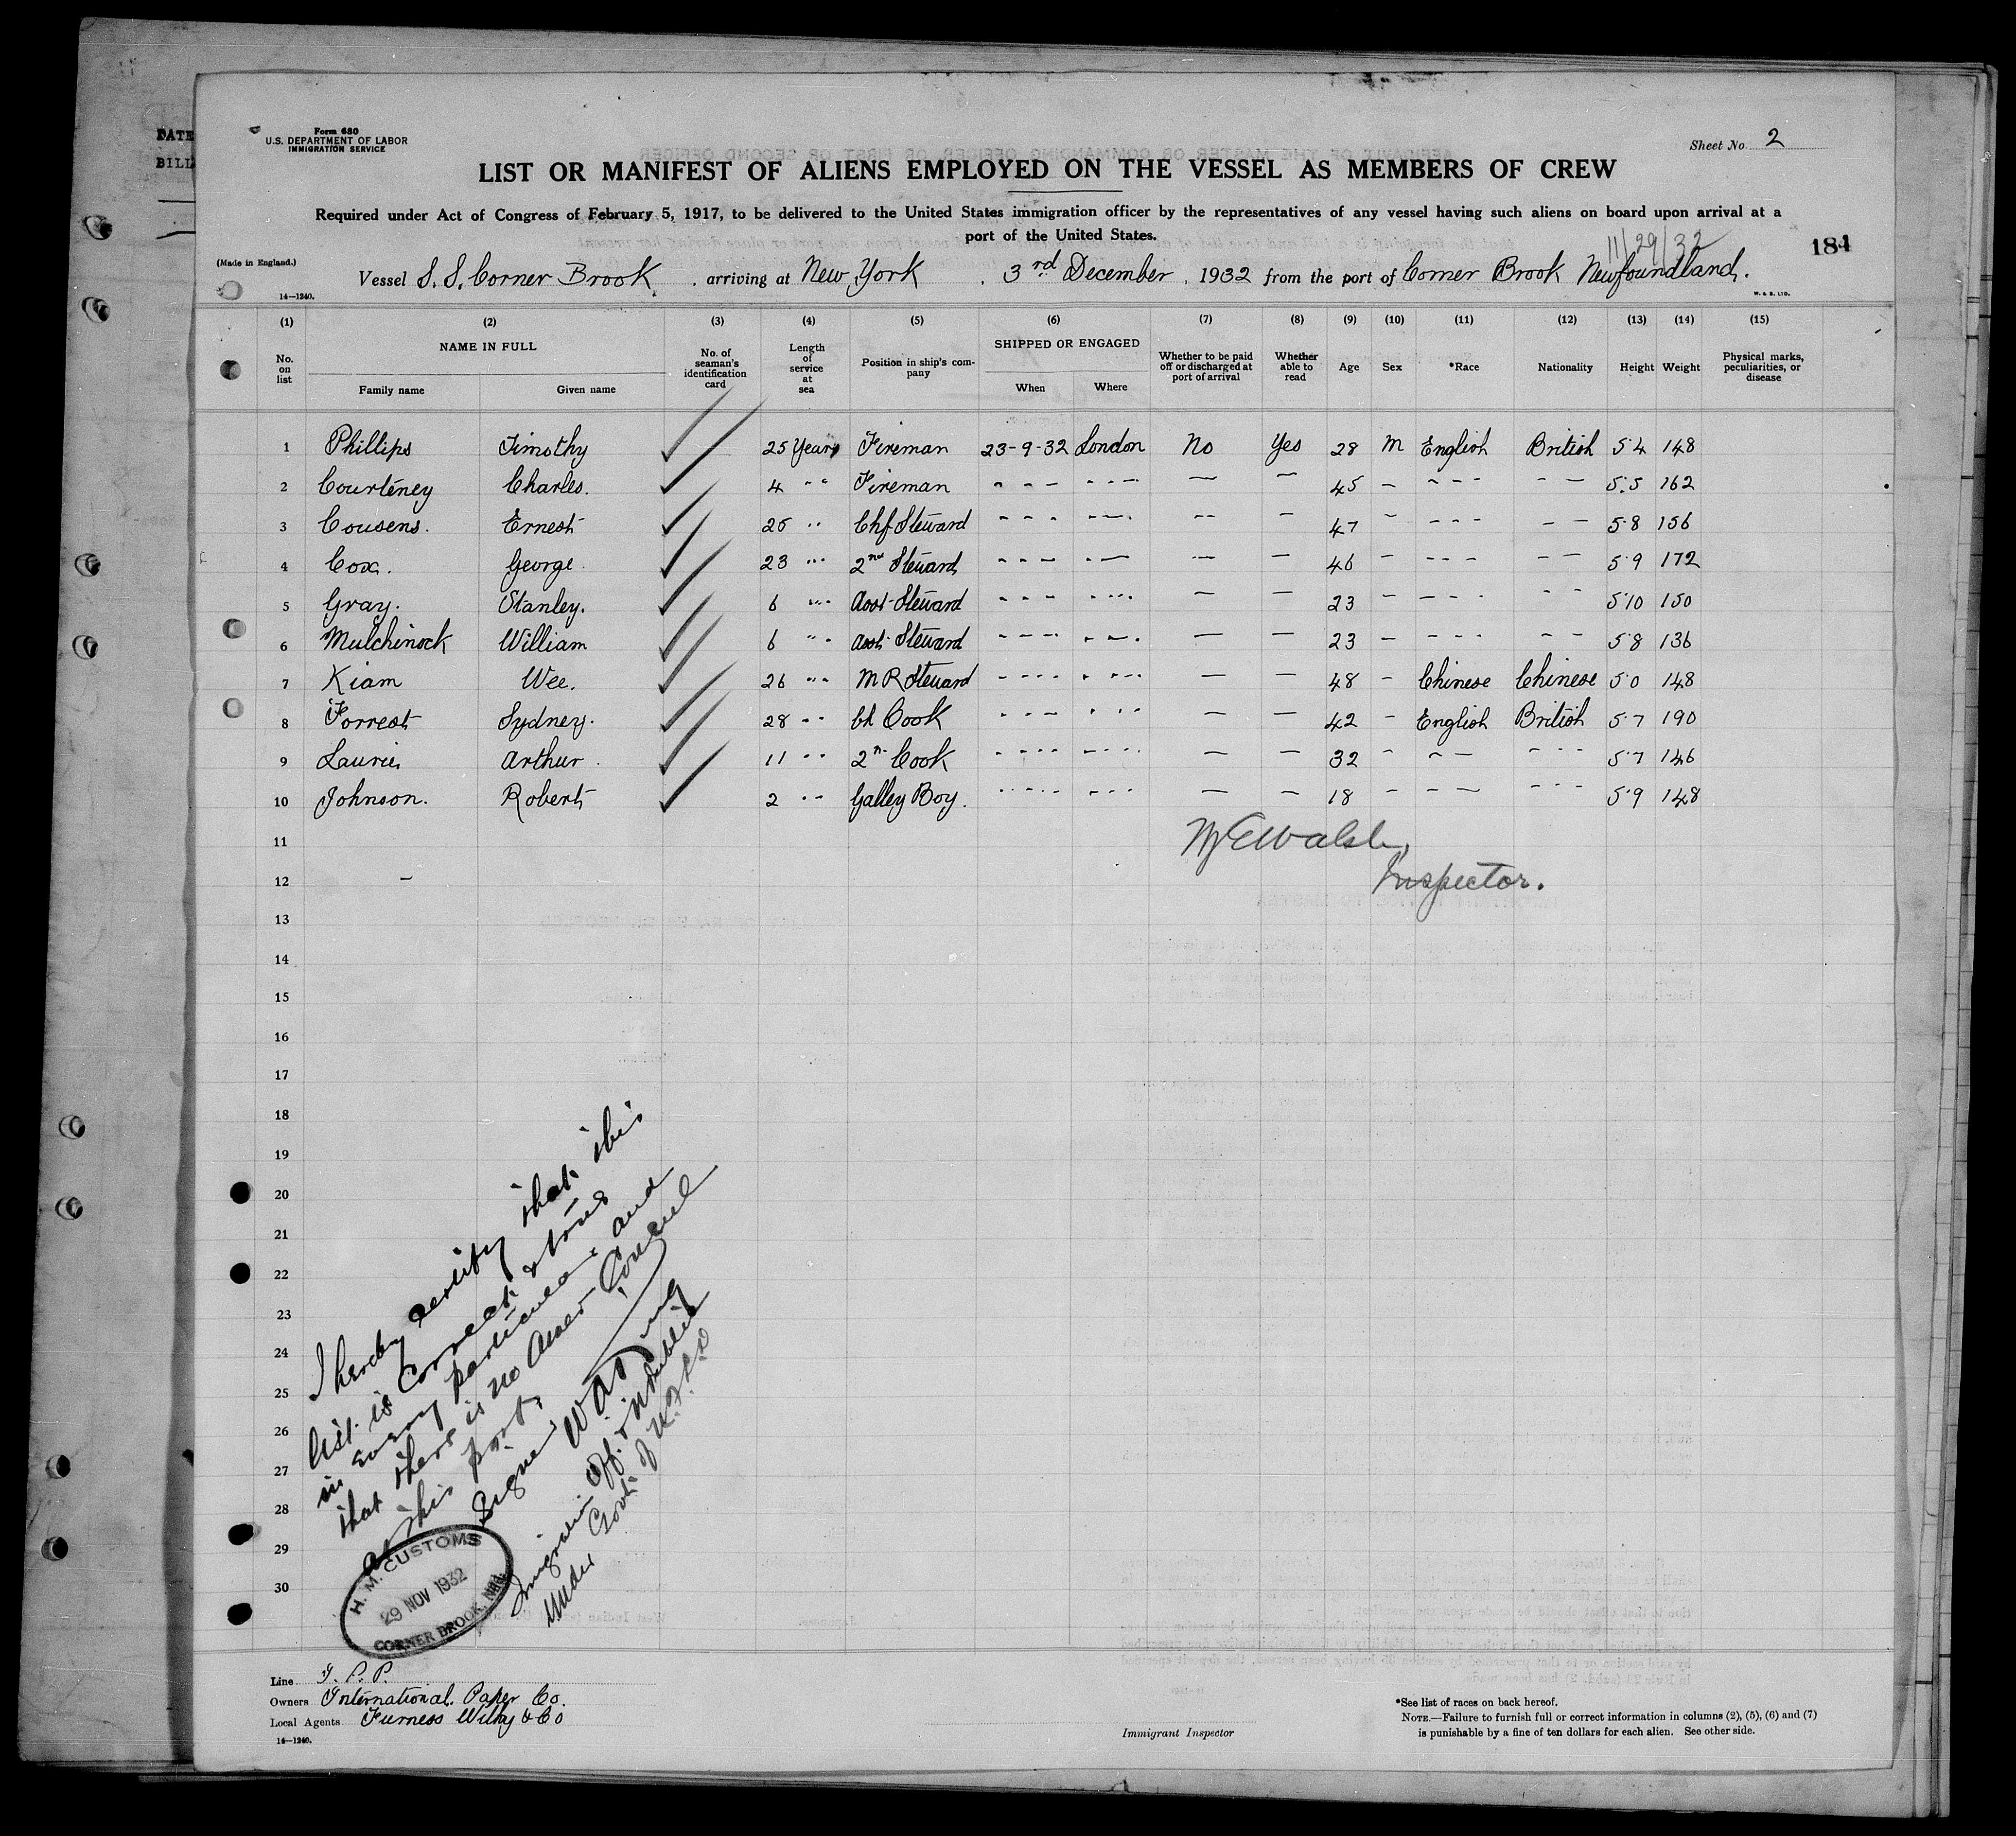 DATE
BILL
Form 680
U.S. DEPARTMENT OF LABOR
IMMIGRATION SERVICE
Sheet No. 2
LIST OR MANIFEST OF ALIENS EMPLOYED ON THE VESSEL AS MEMBERS OF CREW
Required under Act of Congress of February 5, 1917, to be delivered to the United States immigration officer by the representatives of any vessel having such aliens on board upon arrival at a
port of the United States.
11/29/32
181
(Made in England.)
Vessel S.S. Corner Brook, arriving at New York, 3rd December, 1932 from the port of Corner Brook Newfoundland.
14—1240.
W. & S. LTD.
(1) (2) (3) (4) (5) (6) (7) (8) (9) (10) (11) (12) (13) (14) (15)
No. on list NAME IN FULL Family name Given name No. of seaman's identification card Length of service at sea Position in ship's company SHIPPED OR ENGAGED When Where Whether to be paid off or discharged at port of arrival Whether able to read Age Sex *Race Nationality Height Weight Physical marks, peculiarities, or disease
1 Phillips Timothy 25 Years Fireman 23-9-32 London No Yes 28 M English British 5.4 148
2 Courteney Charles. 4 " " Fireman - - - - - - — — 45 - - - - - - 5.5 162
3 Cousens. Ernest 25 " Chf Steward - - - - - - — — 47 - - - - - - 5.8 156
4 Cox. George 23 " 2nd Steward - - - - - — — 46 - - - - - - 5.9 172
5 Gray. Stanley. 6 " Asst Steward - - - - - - — — 23 - - - - - - 5.10 150
6 Mulchinock William 6 " Asst Steward - - - - - - — — 23 - - - - - - 5.8 136
7 Kiam Wee. 26 " M R Steward - - - - - - — — 48 - Chinese Chinese 5.0 148
8 Forrest Sydney. 28 " Ch Cook - - - - - - — — 42 - English British 5.7 190
9 Laurie Arthur. 11 " 2n Cook - - - - - - — — 32 - - - - - - - 5.7 146
10 Johnson. Robert 2 " Galley Boy. - - - - - - — — 18 - - - - - - - 5.9 148
11
W E Walsh,
12
Inspector.
13
14
15
16
17
18
19
20
21
22
23
24
25
26
27
28
29
30
I hereby certify that this
list is correct & true
in every particular and
that there is no Amer Consul
at this port.
Signed
Immigration Off.
under Govt of
H. M. CUSTOMS
29 NOV 1932
CORNER BROOK, Nfld.
Line I. P. P.
Owners International Paper Co.
Local Agents Furness Withy & Co
14—1240.
Immigrant Inspector
*See list of races on back hereof.
NOTE.—Failure to furnish full or correct information in columns (2), (5), (6) and (7)
is punishable by a fine of ten dollars for each alien. See other side.